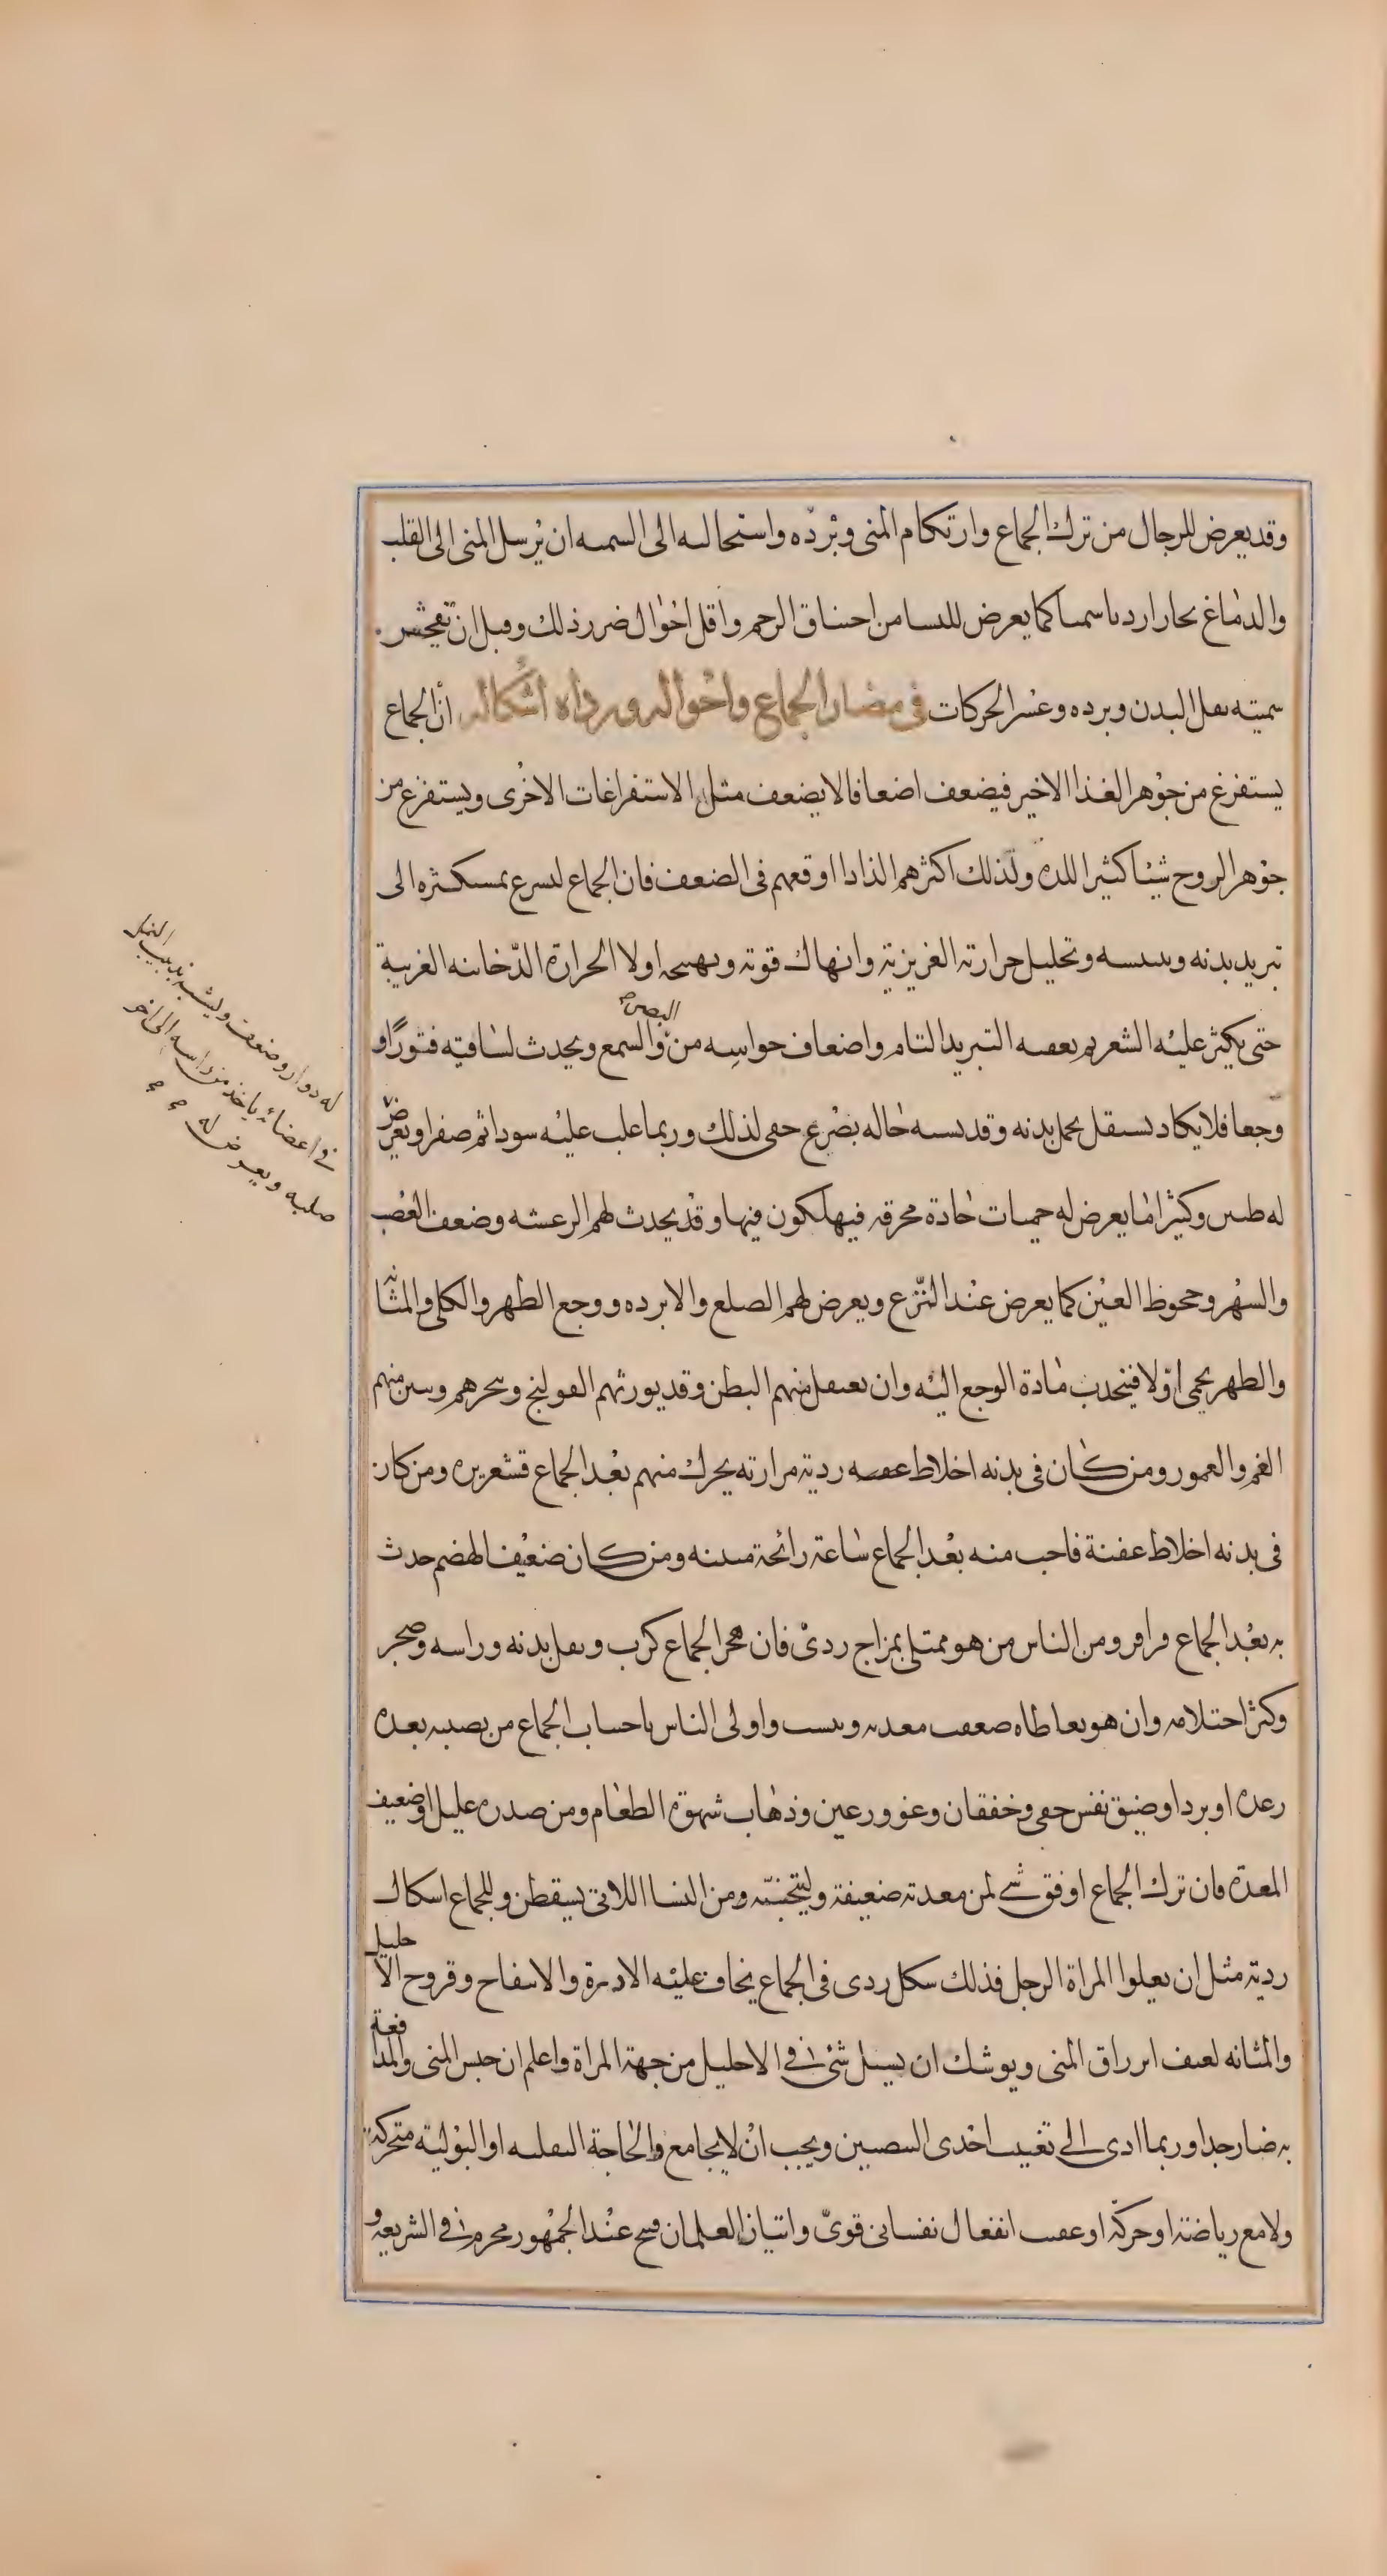 وقد يعرض للرجال من ترك الجماع وارتكام المنى وبرده واستحالته الى السمية ان يرسل المنى الى القلب
والدماغ بخارا رديا سميا كما يعرض للنسا من احتناق الرحم واقل احوال ضرر ذلك وقبل ان تفحش
سميته ثقل البدن وبرده وعسر الحركات في مضار الجماع واحواله ورداه اشكاله ان الجماع
يستفرغ من جوهر الغذا الاخير فيضعف اضعافا لا يضعف مثل الاستفراغات الاخرى ويستفرغ من
جوهر الروح شيئا كثيرا للذة ولذلك اكثرهم الذاذا اوقعهم في الضعف فان الجماع ليسرع بمستكثره الى
تبريد بدنه وييبسه وتحليل حرارته الغريزية وانهاك قوته ويهيجه اولا الحرارة الدخانية الغريبة
حتى يكثر عليه الشعر ثم يعقبه التبريد التام واضعاف حواسه من البصر والسمع ويحدث لساقيه فتورا و
وجعا فلا يكاد يستقل بحمل بدنه وقد يشبه حاله بصرع خفى لذلك وربما غلب عليه سودا ثم صفرا ويعرض
له طنين وكثيرا ما يعرض له حميات حادة محرقة فيهلكون فيها وقد يحدث لهم الرعشه وضعف العصب
والسهر وجحوظ العين كما يعرض عند النزع ويعرض لهم الصلع والابرده ووجع الظهر والكلى والمثانه
والظهر يحمى اولا فينجذب مادة الوجع اليه وان يعتقل منهم البطن وقد يورثهم القولنج ويبخرهم وينتن منهم
الفم والعمور ومن كان في بدنه اخلاط عفنه ردية مرارته يحرك منهم بعد الجماع قشعريره ومن كان
في بدنه اخلاط عفنة فاحت منه بعد الجماع ساعة رائحة منتنه ومن كان ضعيف الهضم حدث
به بعد الجماع قراقر ومن الناس من هو ممتلى بمزاج ردئ فان هجر الجماع كرب وثقل بدنه وراسه وضجر
وكثر احتلامه وان هو تعاطاه ضعفت معدته ويبست واولى الناس باجتناب الجماع من يصيبه بعده
رعده او برد او ضيق نفس خفى وخفقان وغوور عين وذهاب شهوة الطعام ومن صدره عليل او ضعيف
المعدة فان ترك الجماع اوفق شي لمن معدته ضعيفة وليتجنبه ومن النسا اللاتى يسقطن وللجماع اشكال
ردية مثل ان يعلوا المراة الرجل فذلك شكل ردى في الجماع يخاف عليه الادرة والانتفاخ وقروح الاحليل
والمثانه لعنف انزراق المنى ويوشك ان يسيل شئ في الاحليل من جهة المراة واعلم ان حبس المنى والمدافعة
به ضار جدا وربما ادى الى تغيب احدى البيضتين ويجب ان لا يجامع والحاجة الثقلية او البولية متحركة
ولا مع رياضة او حركة او عقيب انفعال نفسانى قوى واتيان الغلمان قبيح عند الجمهور محرم في الشريعه و
له دوار وضعف وليشبه بدبيب النمل
في اعضائه ياخذ من راسه الى اخر
صلبه ويعرض له